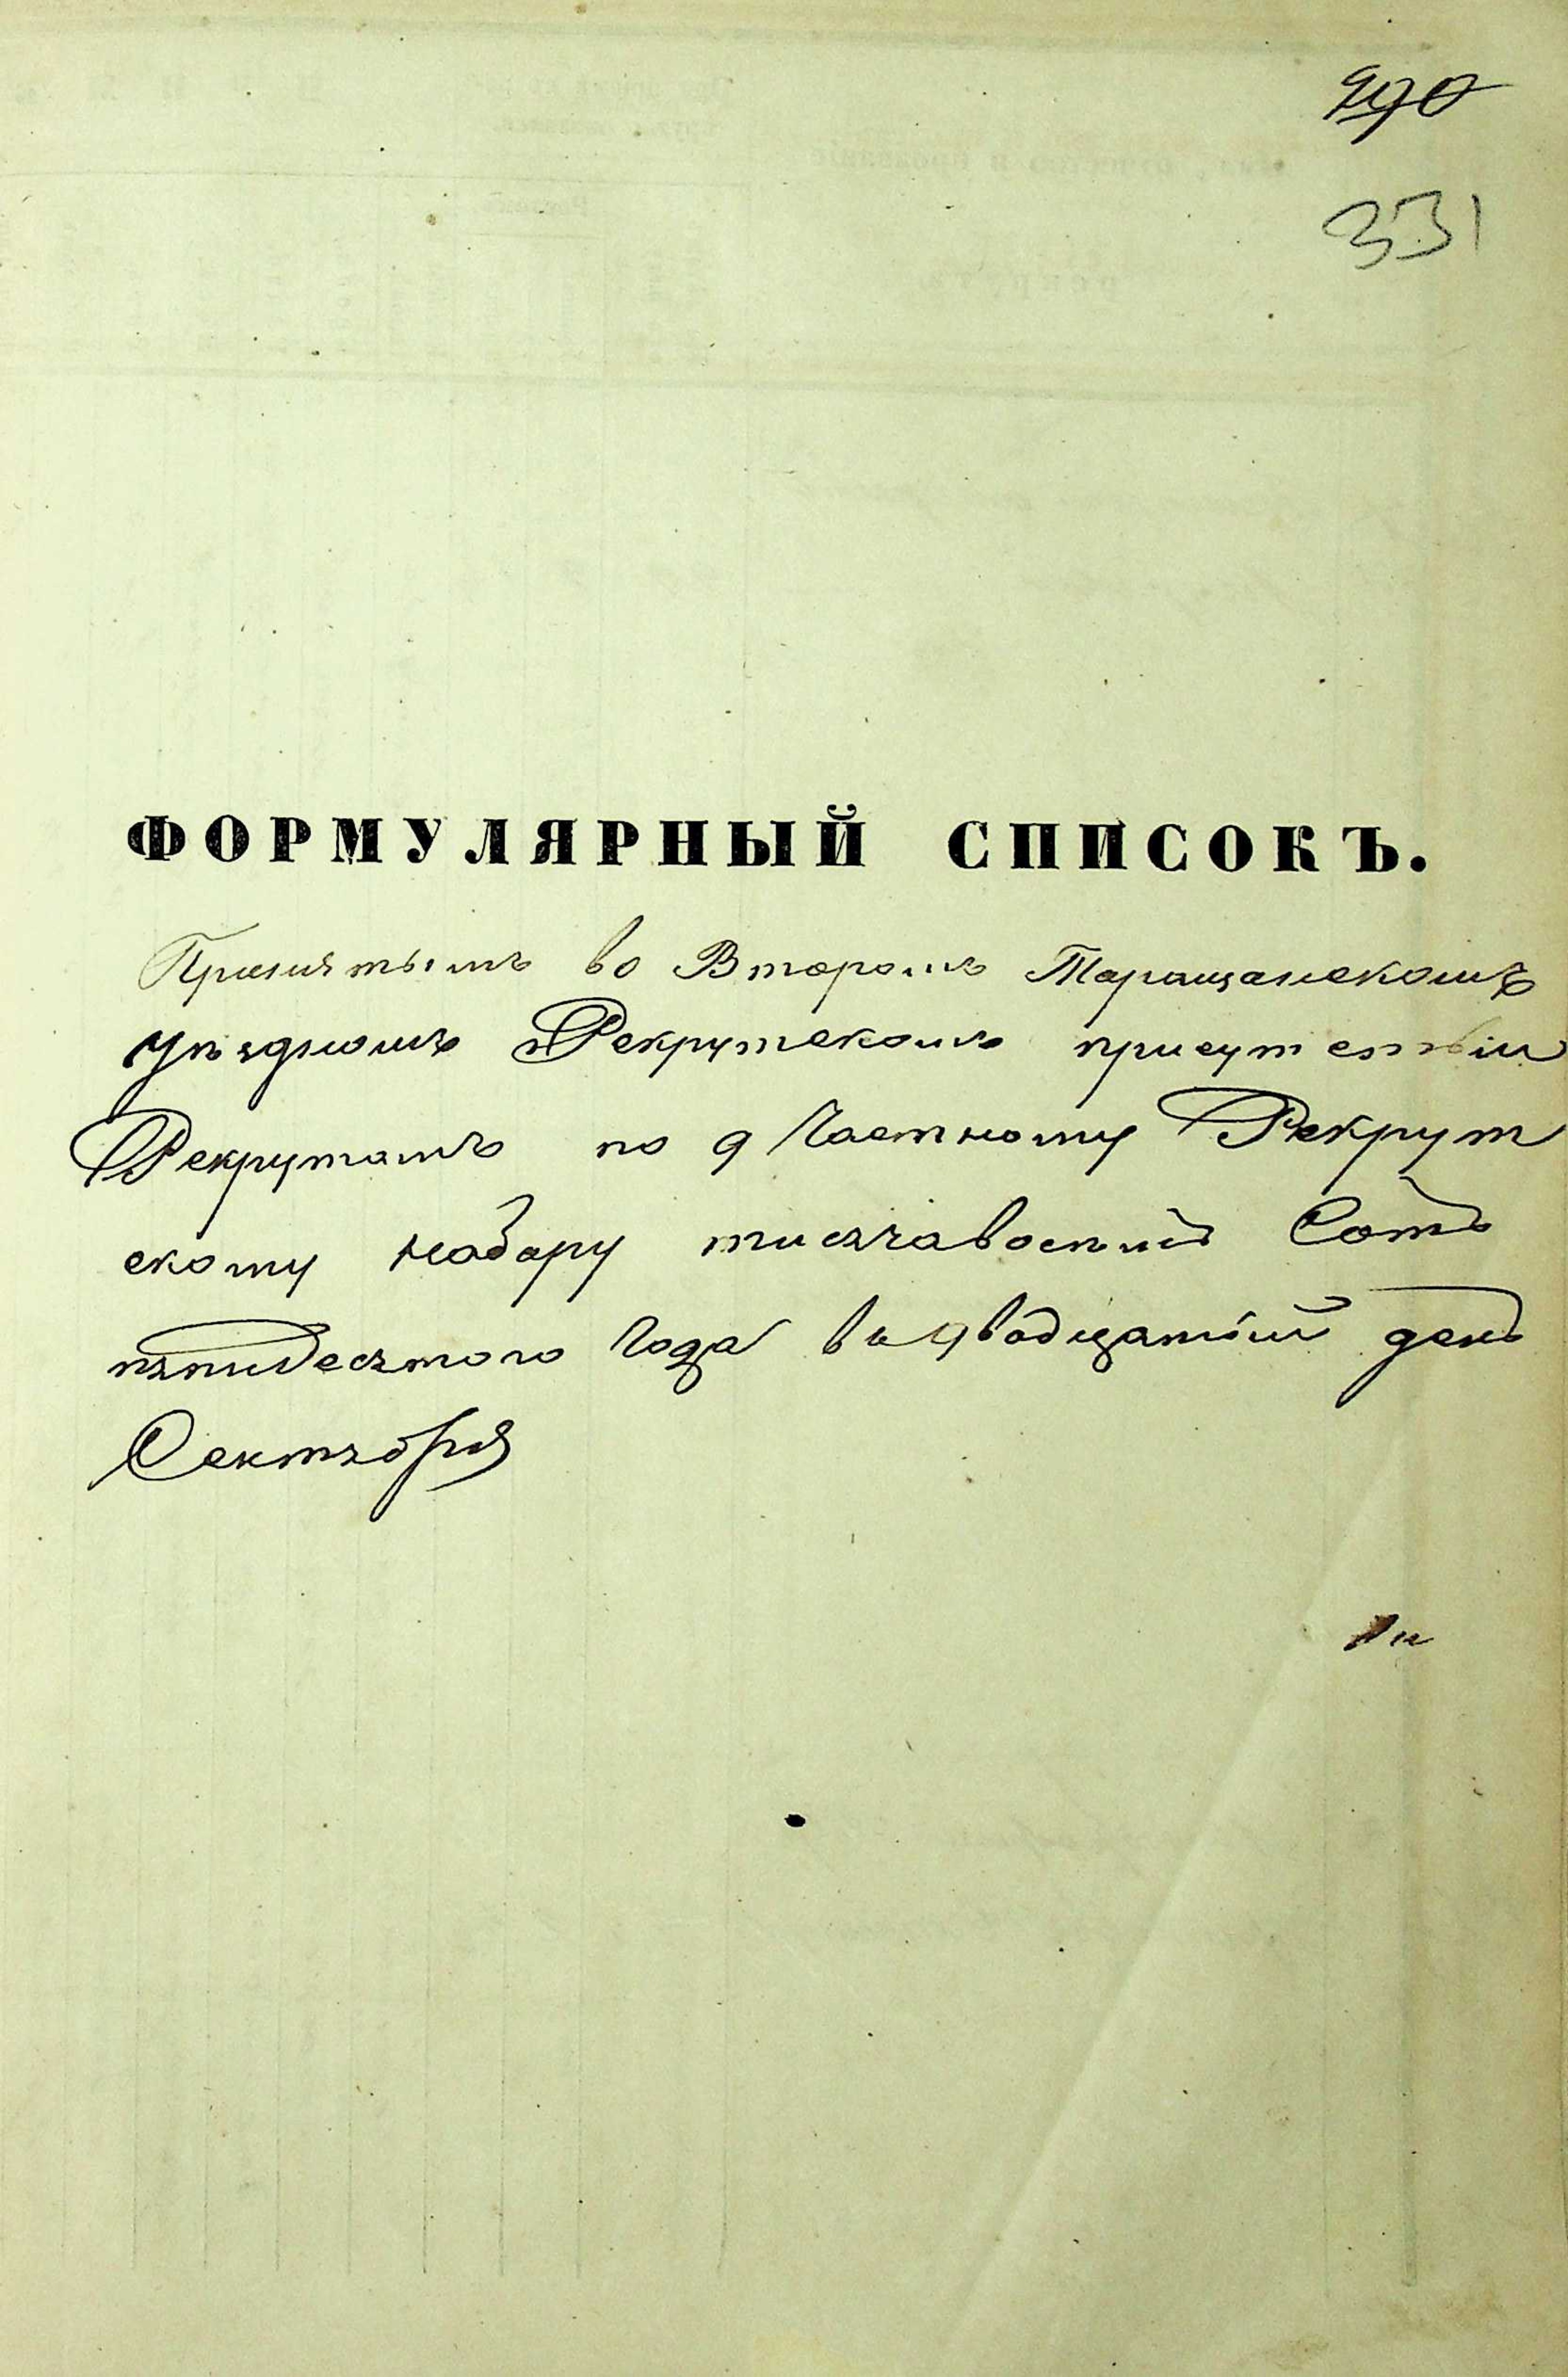 290
331
ФОРМУЛЯРНЫЙ СПИСОКЪ.
Принятымъ во Второмъ Таращанскомъ
уѣздномъ Рекрутскомъ присутствіи
Рекрутамъ по 9 Частному Рекрут
скому набору тисячавосъмъ Сотъ
пятидесятого Года въ двадцатый день
Сентября